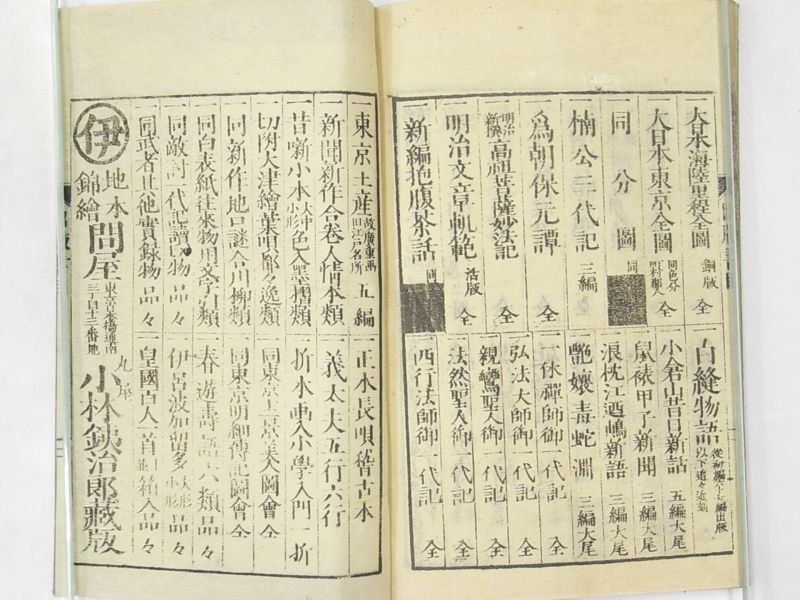 大日本海陸里程全圖 銅版 全
大日本東京全圖 同色分 町村獨人 全
一同分圖 同
楠公三代記 三編
一爲朝保元譚 全
明治新撰 高祖菩薩妙法記 全
明治文章軌範 活版 全
一新編抱腹茶話 同
一白縫物語 從初編六十七編出版 以下追々近刻
小倉山昔日新話 五編大尾
鼠裱甲子新聞 三編大尾
浪枕江迺嶋新語 三編大尾
艶孃毒蛇淵 三編大尾
一休禪師御一代記 全
弘法大師御一代記 全
親鸞聖人御一代記 全
法然聖人御一代記 全
西行法師御一代記 全
一東京土産 故廣重画 旧江戸名所 五編
一新聞新作合巻人情本類
一昔噺小本 大中小形 色入墨摺類
一切附大津繪葉唄都々逸類
一同新作地口謎合川柳類
一同白表紙往來物用文字引類
一同敵討一代記讀切物品々
一同武者其他實録物品々
一正本長唄稽古本
一義太夫五行六行
一折本画入小學入門一折
一同東京
美人圖會 全
一同東京
細傳記圖會 全
一春遊壽語六類品々
一伊呂波加留多 大形小形 品々
一皇國百人一首 箱入品々
伊
地本錦繪問屋
東京日本橋通南三丁目十三番地
丸屋
小林鉄治郎藏版